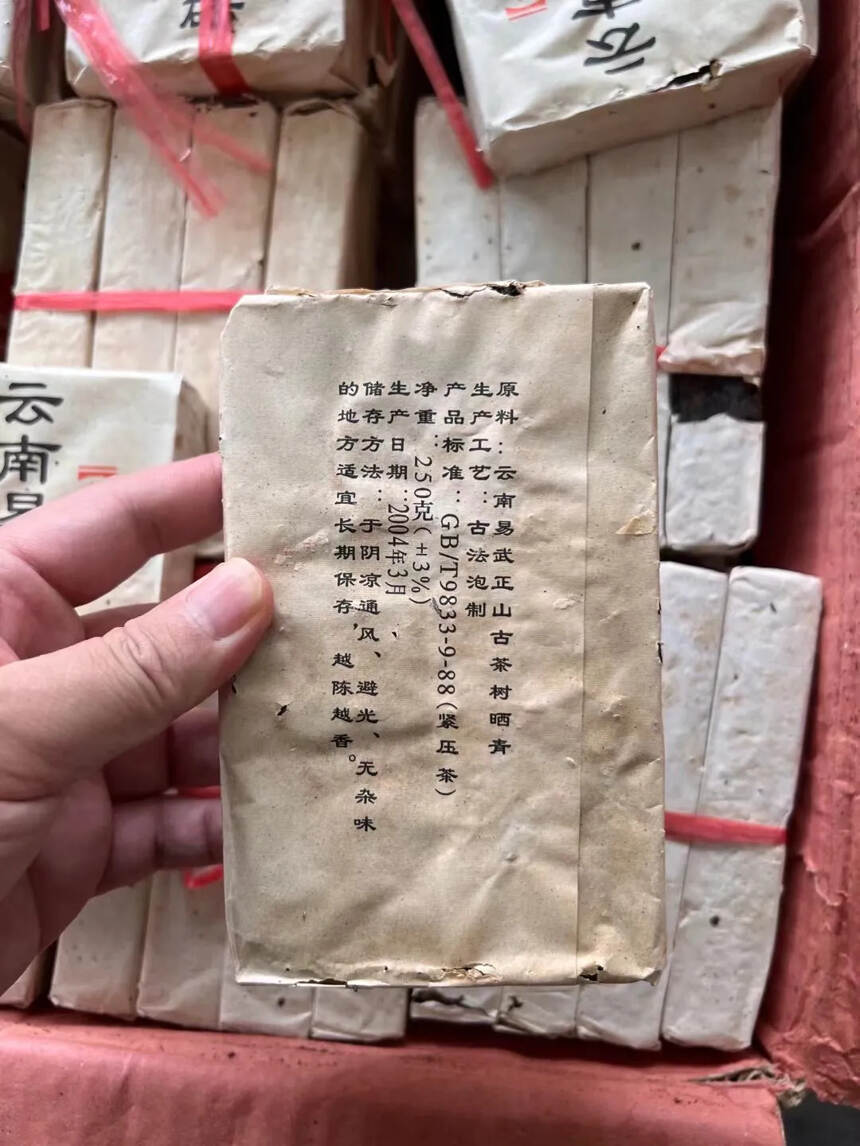 原料：云南易武正山古茶树晒青
生产工艺：古法泡制
产品标准：GB/T9833-9-88(紧压茶)
净重：250克(±3%)
生产日期：2004年3月
储存方法：于阴凉通风、避光、无杂味
的地方适宜长期保存，越陈越香。
云南易
云南